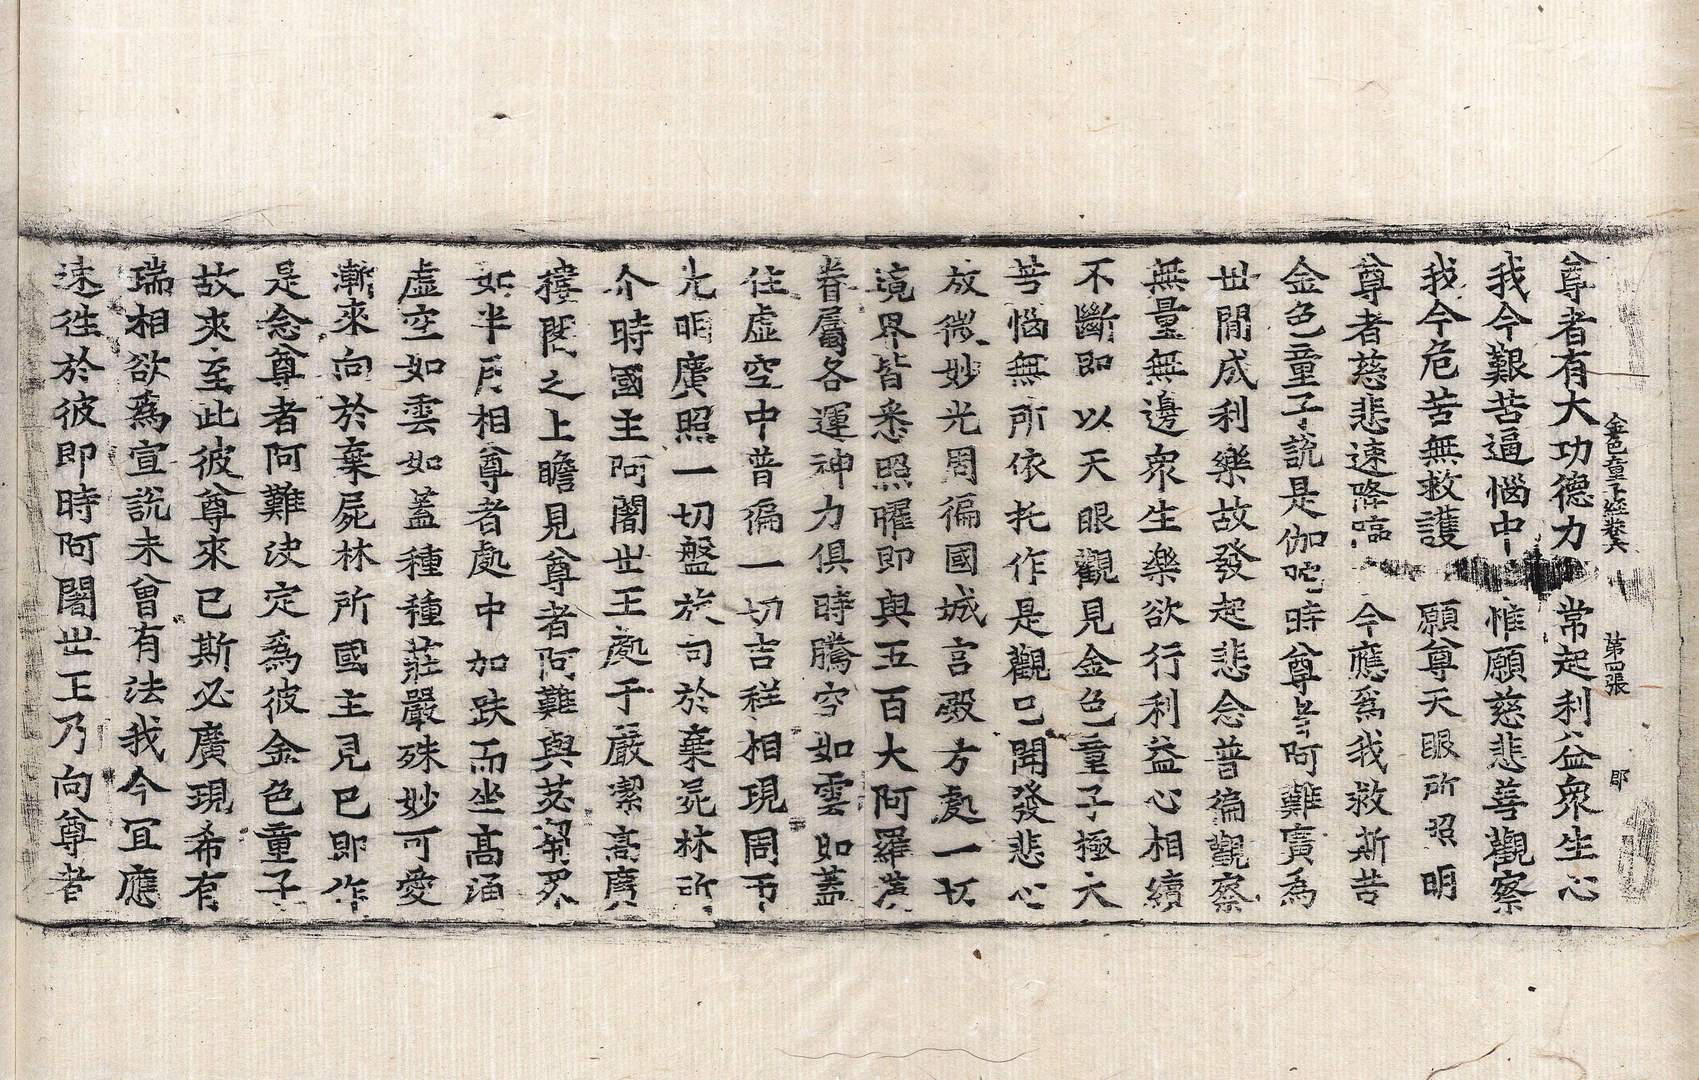 金色童子經卷六　第四張　郎
尊者有大功德力　常起利益衆生心
我今艱苦逼惱中　惟願慈悲善觀察
我今危苦無救護　願尊天眼所照明
尊者慈悲速降臨　今應爲我救斯苦
金色童子說是伽陀時尊者阿難實爲
世閒成利樂故發起悲念普徧觀察
無量無邊衆生樂欲行利益心相續
不斷即以天眼觀見金色童子極大
苦惱無所依托作是觀已開發悲心
放微妙光周徧國城宮殿方處一切
境界皆悉照曜即與五百大阿羅漢
眷屬各運神力俱時騰空如雲如蓋
住虛空中普徧一切吉祥相現周帀
光明廣照一切盤旋旬於棄屍林所
尒時國主阿闍世王處于嚴潔高廣
樓閣之上瞻見尊者阿難與苾芻眾
如半月相尊者處中加趺而坐高涌
虛空如雲如蓋種種莊嚴殊妙可愛
漸來向於棄屍林所國主見已即作
是念尊者阿難決定爲彼金色童子
故來至此彼尊來已斯必廣現希有
瑞相欲爲宣說未曾有法我今冝應
速往於彼即時阿闍世王乃向尊者